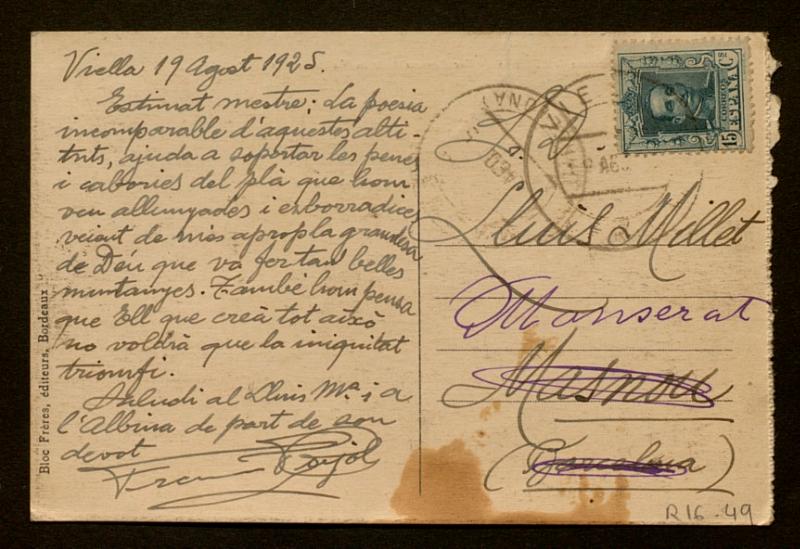 Viella 19 Agost 1925.
Estimat mestre: La poesia
incomparable d'aquestes alti-
tuts, ajuda a soportar les penes
i cabories del plà que hom
veu allunyades i esborradices
veient de més aprop la grandesa
de Déu que va fer tan belles
muntanyes. També hom pensa
que Ell que creà tot aixó
no voldrà que la iniquitat
triomfi.
Saludi al Lluis Mª i a
l'Albina de part de son
devot
Pujol
Bloc Frères, éditeurs, Bordeaux
CORREOS
ESPAÑA
15 Cs
Sr.
Lluis Millet
Monserat
Masnou
(Barcelona)
R16-49